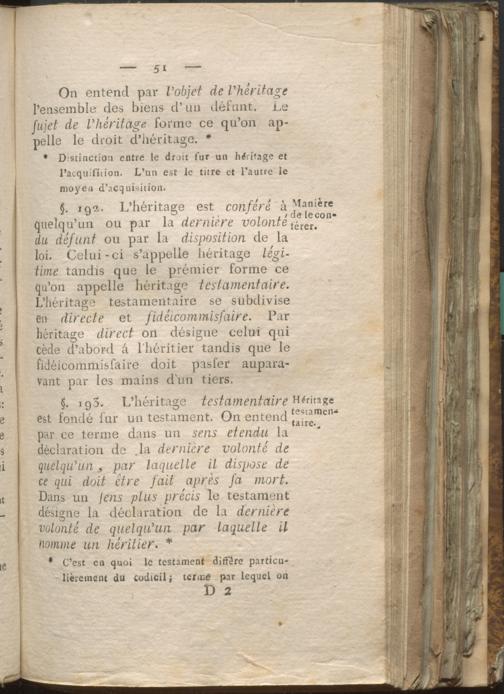 — 51 —
On entend par l'objet de l'héritage
l'ensemble des biens d'un défunt. Le
ſujet de l'héritage forme ce qu'on ap-
pelle le droit d'héritage. *
* Distinction entre le droit ſur un héritage et
l'acquiſition. L'un est le titre et l'autre le
moyen d'acquisition.
§. 192. L'héritage est conféré à
quelqu'un ou par la dernière volonté
du défunt ou par la disposition de la
loi. Celui-ci s'appelle héritage légi-
time tandis que le prémier forme ce
qu'on appelle héritage testamentaire.
L'héritage testamentaire se subdivise
en directe et fidéicommisſaire. Par
héritage direct on désigne celui qui
cède d'abord á l'héritier tandis que le
fidéicommisſaire doit pasſer aupara-
vant par les mains d'un tiers.
Manière
de le con-
férer.
§. 193. L'héritage testamentaire
est fondé ſur un testament. On entend
par ce terme dans un sens etendu la
déclaration de la dernière volonté de
quelqu'un, par laquelle il dispose de
ce qui doit être fait après ſa mort.
Dans un ſens plus précis le testament
désigne la déclaration de la dernière
volonté de quelqu'un par laquelle il
nomme un héritier. *
Héritage
testamen-
taire.
* C'est en quoi le testament diffère particu-
lièrement du codicil; terme par lequel on
D 2